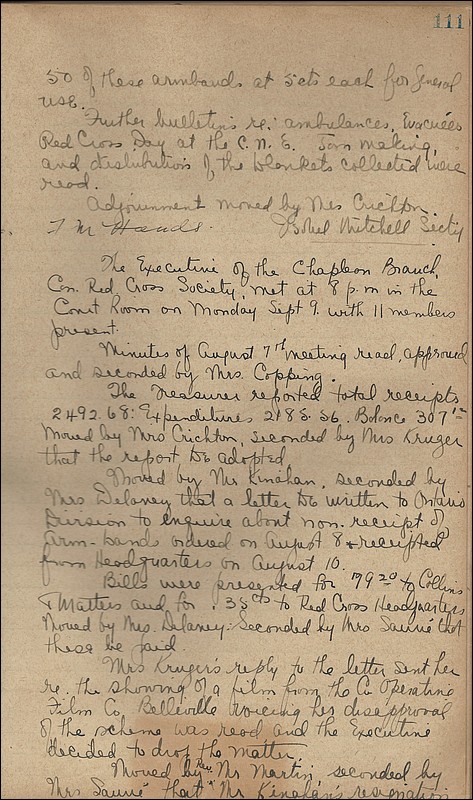 111
50 of these armbands at 5cts each for General
use.
Further bulletins re: ambulances, Evacuées
Red Cross Day at the C. N. E. Jam making,
and distribution of the blankets collected were
read.
Adjournment moved by Mrs Crichton.
Isobel Mitchell Secty
The Executive of the Chapleau Branch,
Can. Red Cross Society, met at 8 p.m in the
Court Room on Monday Sept 9. with 11 members
present.
Minutes of August 7th meeting read, approved
and seconded by Mrs. Copping.
The Treasurer reported total receipts
2492.68: Expenditures 2185.56. Balance 307
Moved by Mrs Crichton, seconded by Mrs Kruger
that the report be adopted
Moved by Mr Kinahan, seconded by
Mrs Delaney that a letter be written to Ontario
Division to enquire about non-receipt of
arm-bands ordered on August 8 & receipted
from Headquarters on August 10.
Bills were presented for 79 20 to Collins
& Matters and for .38 cts to Red Cross Headquarters
Moved by Mrs. Delaney. Seconded by Mrs Sauvé that
these be paid.
Mrs Kruger's reply to the letter sent her
re. the showing of a film from the Co Operating
Film Co, Belleville voicing her disapproval
of the scheme was read and the Executive
decided to drop the matter.
Moved by Rev Mr Martin, seconded by
Mrs Sauvé that Mr Kinahan's resignation